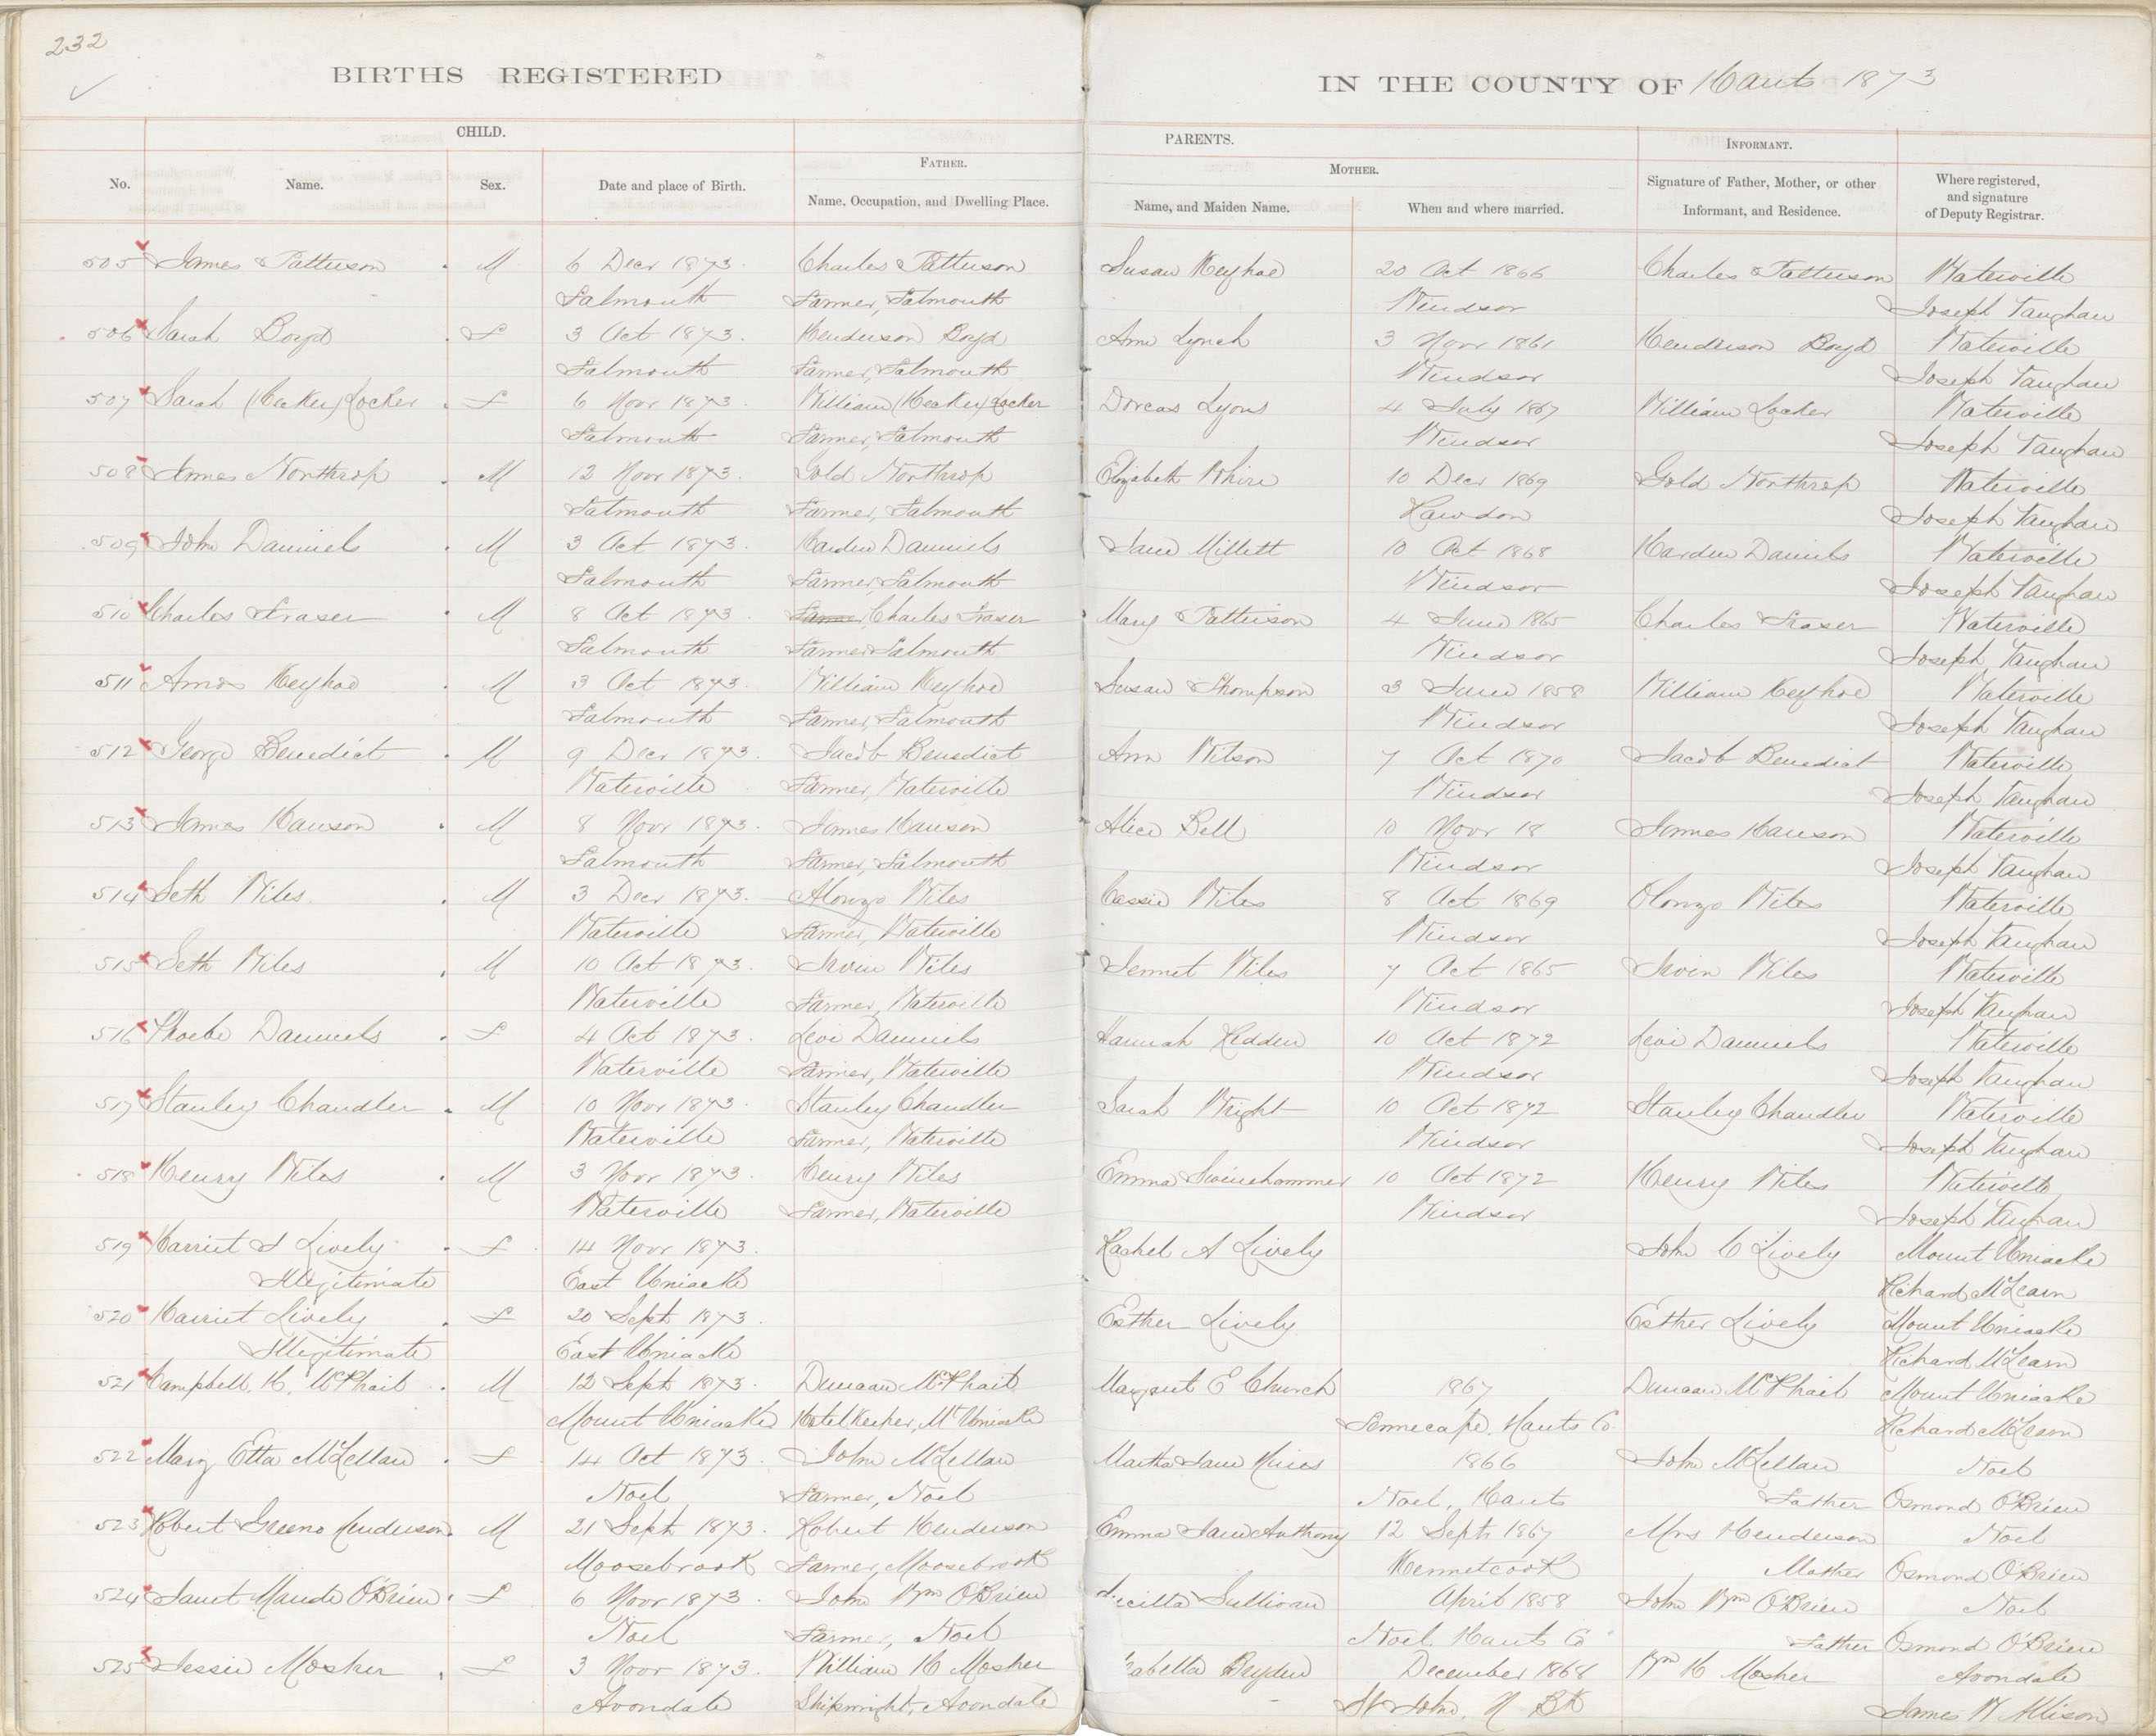 232
BIRTHS REGISTERED IN THE COUNTY OF Hants 1873
CHILD. PARENTS.
FATHER. MOTHER. INFORMANT.
No. Name. Sex. Date and place of Birth. Name, Occupation, and Dwelling Place. Name, and Maiden Name. When and where married. Signature of Father, Mother, or other Informant, and Residence. Where registered, and signature of Deputy Registrar.
505 James Patterson M 6 Decr 1873. Charles Patterson Susan Keyhoe 20 Oct 1866 Charles Patterson Waterville
Falmouth Farmer, Falmouth Windsor Joseph Vaughan
506 Sarah Boyd F 3 Oct 1873. Henderson Boyd Ann Lynch 3 Novr 1861 Henderson Boyd Waterville
Falmouth Farmer, Falmouth Windsor Joseph Vaughan
507 Sarah (Hecker) Locker F 6 Novr 1873. William (Hecker) Locker Dorcas Lyons 4 July 1867 William Locker Waterville
Falmouth Farmer, Falmouth Windsor Joseph Vaughan
508 James Northrop M 12 Novr 1873. Gold Northrop Elizabeth 10 Decr 1869 Gold Northrop Waterville
Falmouth Farmer, Falmouth Rawdon Joseph Vaughan
509 John Danniels M 3 Oct 1873. Harden Danniels Jane Millett 10 Oct 1868 Harden Daniels Waterville
Falmouth Farmer, Falmouth Windsor Joseph Vaughan
510 Charles Fraser M 8 Oct 1873. Farmer, Charles Fraser Mary Patterson 4 June 1865 Charles Fraser Waterville
Falmouth Farmer Falmouth Windsor Joseph Vaughan
511 Amos Keyhoe M 3 Oct 1873. William Keyhoe Susan Thompson 3 June 1858 William Keyhoe Waterville
Falmouth Farmer, Falmouth Windsor Joseph Vaughan
512 George Benedict M 9 Decr 1873. Jacob Benedict Ann Wilson 7 Oct 1870 Jacob Benedict Waterville
Waterville Farmer, Waterville Windsor Joseph Vaughan
513 James Hanson M 8 Novr 1873. James Hanson Alice Bell 10 Novr 18 James Hanson Waterville
Falmouth Farmer, Falmouth Windsor Joseph Vaughan
514 Seth Wiles M 3 Decr 1873. Alonzo Wiles Cassie Wiles 8 Oct 1869 Olonzo Wiles Waterville
Waterville Farmer, Waterville Windsor Joseph Vaughan
515 Seth Wiles M 10 Oct 1873. Irvin Wiles Jennet Wiles 7 Oct 1865 Irvin Wiles Waterville
Waterville Farmer, Waterville Windsor Joseph Vaughan
516 Phoebe Danniels F 4 Oct 1873. Levi Danniels Hannah Redden 10 Oct 1872 Levi Danniels Waterville
Waterville Farmer, Waterville Windsor Joseph Vaughan
517 Stanley Chandler M 10 Novr 1873. Stanley Chandler Sarah Wright 10 Oct 1872 Stanley Chandler Waterville
Waterville Farmer, Waterville Windsor Joseph Vaughan
518 Henry Wiles M 3 Novr 1873. Henry Wiles Emma Swinehammer 10 Oct 1872 Henry Wiles Waterville
Waterville Farmer, Waterville Windsor Joseph Vaughan
519 Harriet J Lively F 14 Novr 1873. Rachel A Lively John C Lively Mount Uniacke
Illegitimate East Uniacke Richard McLearn
520 Harriet Lively F 20 Sept 1873. Esther Lively Esther Lively Mount Uniacke
Illegitimate East Uniacke Richard McLearn
521 Campbell, H, McPhail M 12 Sept 1873. Duncan McPhail Margaret E Church 1867 Duncan McPhail Mount Uniacke
Mount Uniacke Hotel Keeper, Mt Uniacke Tennecape, Hants Co. Richard McLearn
522 Mary Etta McLellan F 14 Oct 1873. John McLellan Martha Jane Hines 1866 John McLellan Noel
Noel Farmer, Noel Noel, Hants Father Osmond O'Brien
523 Robert Greeno Henderson M 21 Sept 1873. Robert Henderson Emma Jane Anthony 12 Septr 1867 Mrs Henderson Noel
Moosebrook Farmer, Moosebrook Kennetcook Mother Osmond O'Brien
524 Janet Maude O'Brien F 6 Novr 1873. John Wm O'Brien icilla Sullivan April 1858 John Wm O'Brien Noel
Noel Farmer, Noel Noel, Hants Co Father Osmond O'Brien
525 Jessie Mosher F 3 Novr 1873. William H Mosher abella Bryden December 1868 Wm H Mosher Avondale
Avondale Shipwright, Avondale St John, N Bk James W Allison